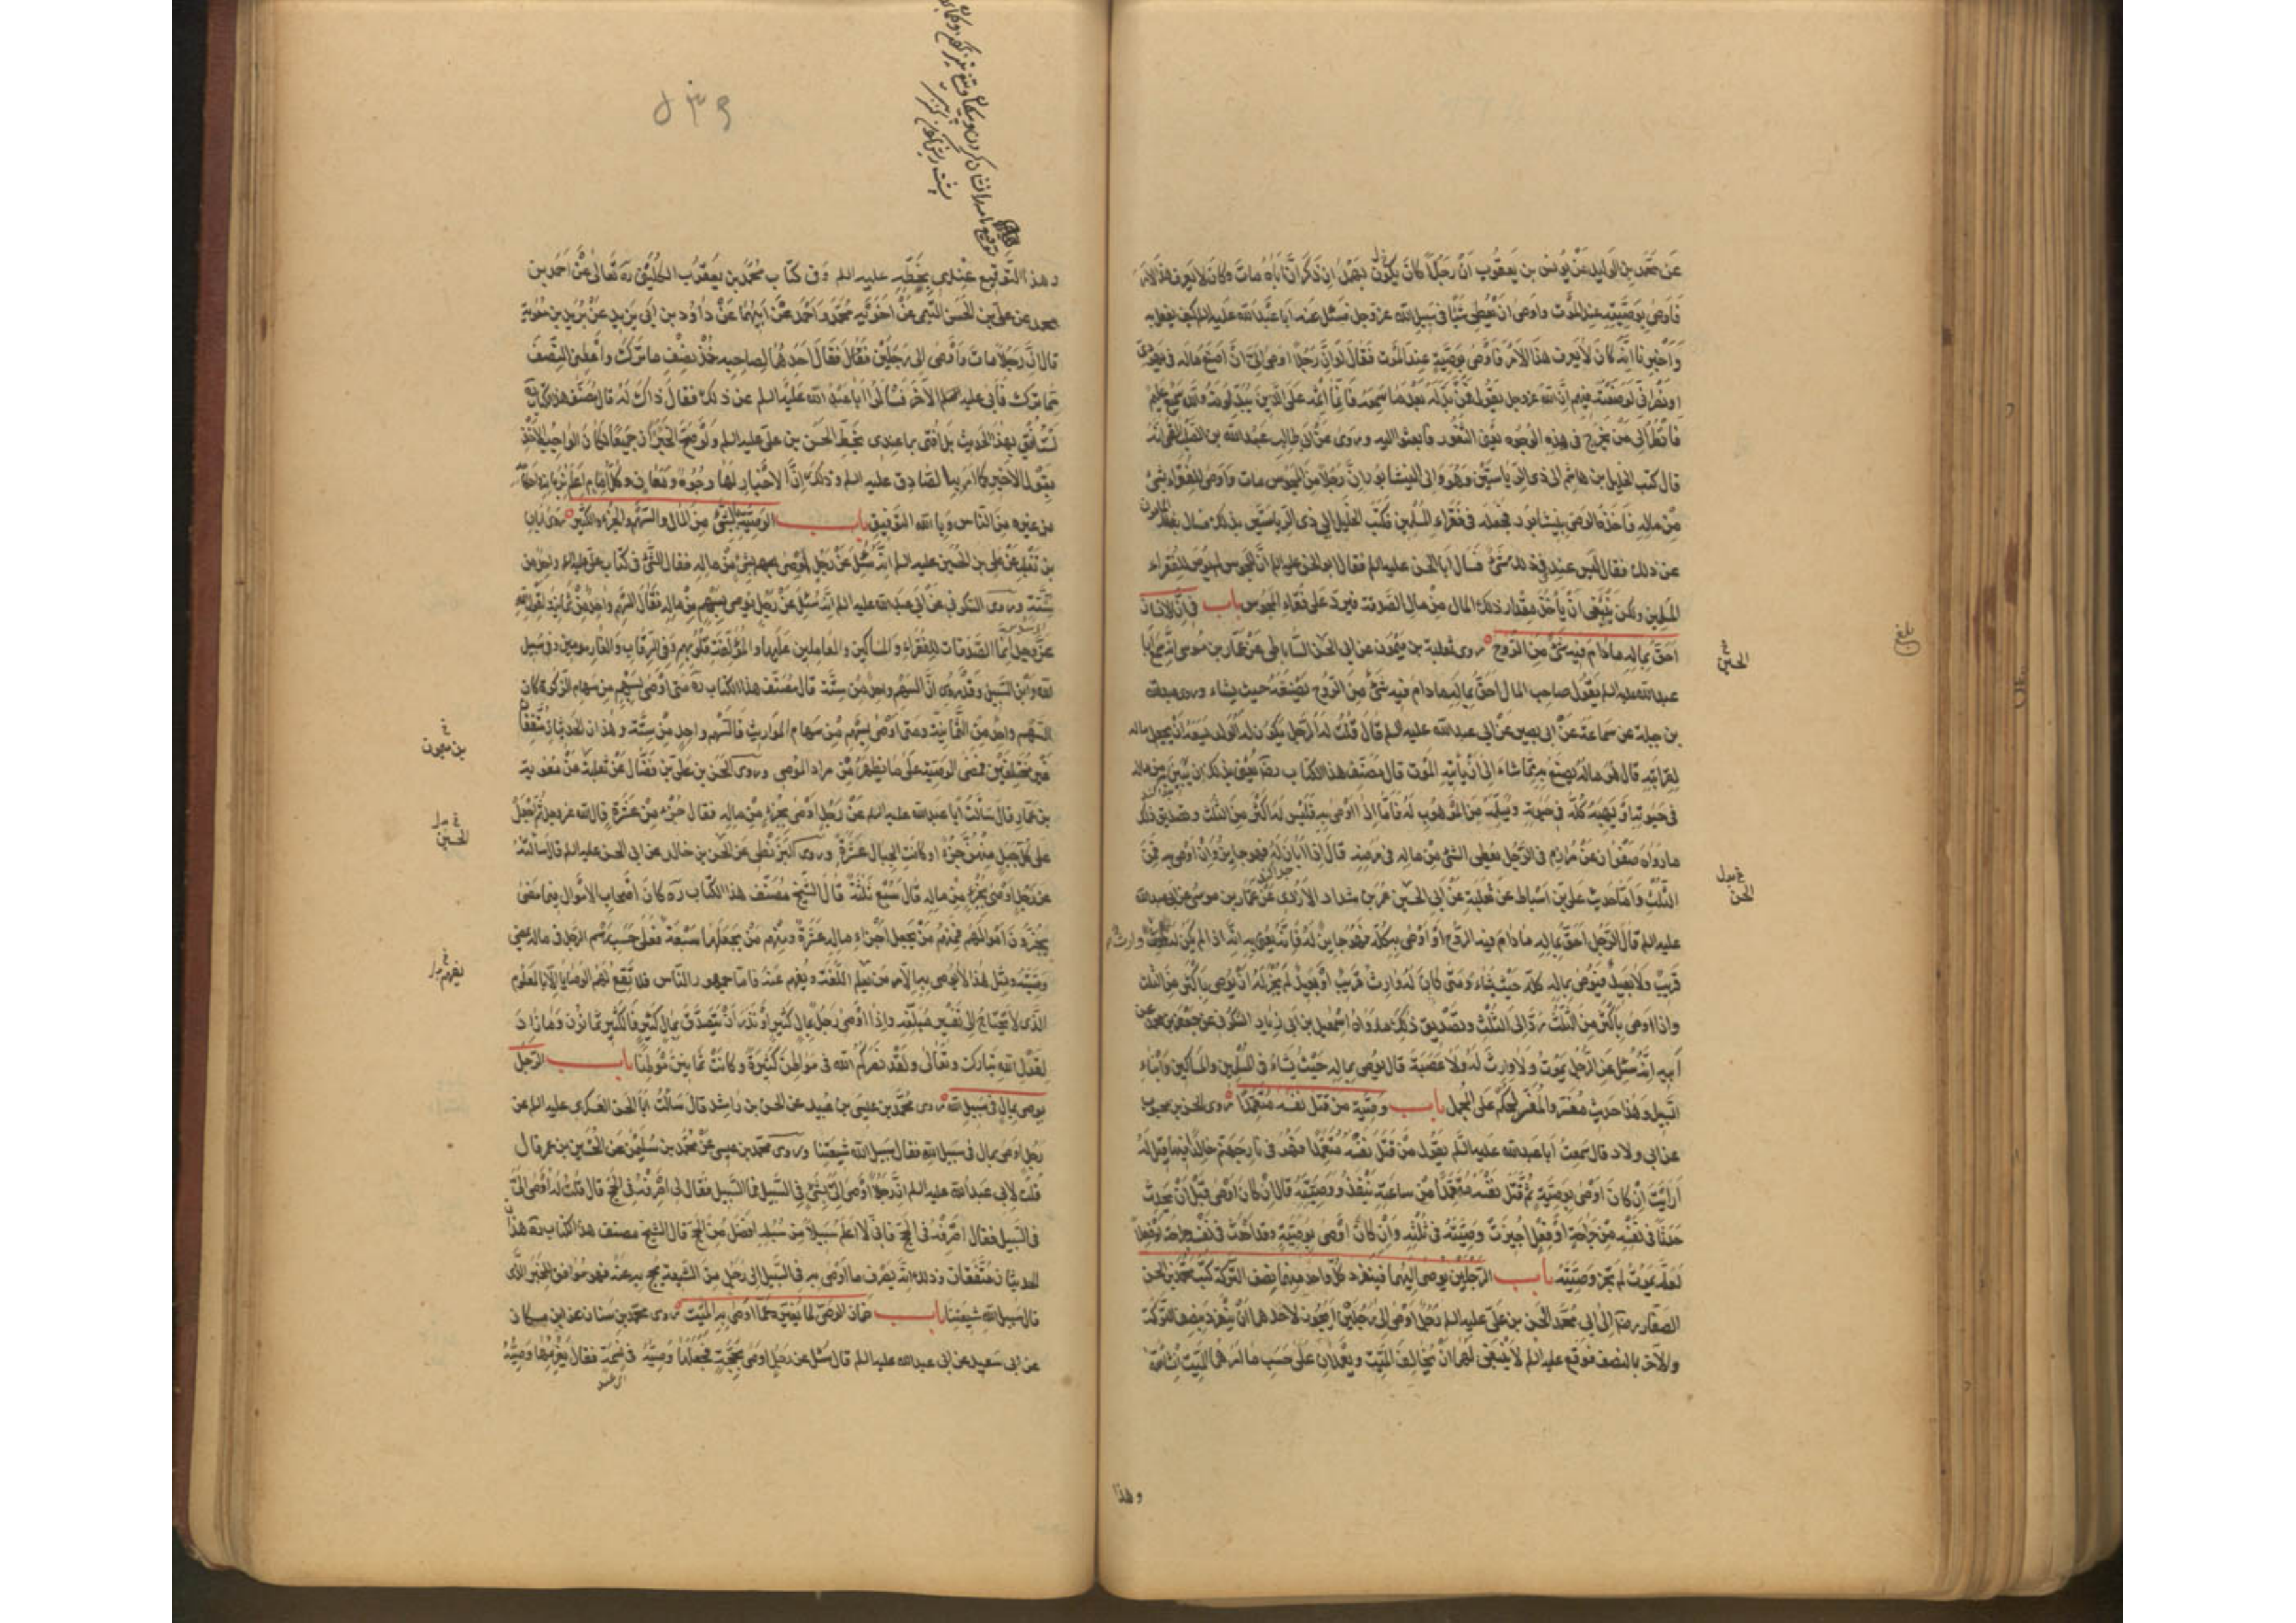 عَن محمّد بن الوليد عَنْ يُونس بن يعقُوب اَنّ رَجُلًا كانَ يكُون بهَمْدان ذكرَ اَنَّ اَباهُ ماتَ وكانَ لا يعرف هذا الامر
فَاَوصى بوَصيّتِه عندَ الموت واَوصى اَنْ يُعطى شئ فى سَبيل الله عز وجل فسئل عنه ابا عَبْد الله عليه السلم كيف يفعل به
وَاَخبرنا اَنّه كانَ لا يعرف هذا الاَمر فَاَوصى بوَصيّةٍ عندَ الموت فقالَ لو اَنَّ رَجُلًا اوصى اِلَىّ اَنْ اَضع ماله فى يَهودىّ
اونصرانىّ لوَضعته فيهم اِنّ الله عز وجل يقول فمَنْ بدّله بَعْدَ ما سَمِعه فَاِنّما اِثمه عَلى الّذين يبدّلونه اِنَّ الله سَميع عليم
فانظر اِلى مَنْ يخرُج فى هذِه الوُجوه يعنى الثغُور فابعثوا اليه وروى عَنْ اَبى طالِب عَبْد الله بن الصلت القمى انّه
قال كتب الخليل بن هاشم الى ذى الرياستين وهو والى نيشابور انَّ رَجُلًا مِن المجوس مات واَوصى للفقراء بشئ
مِنْ مالِه فاَخذه الوصى بنيشابور فجعله فى فقراء المسلمين فكتب الخليل الى ذى الرياستين بذلك فسَأل المامون
عن ذلك فقال ليس عندى فى ذلك شئ فسَال اَبا الحسن عليه السلم فقال ابو الحسن عليه السلم انّ المجوسى لم يوص لفقراء
المسلمين ولكن ينبغى اَنْ يأخذ مقدار ذلك المال مِنْ مال الصّدقة فيردّ على فقراء المجوس باب فى اَنّ الانسان
اَحَقّ بماله مادام فيه شئ مِنَ الرّوح روى ثعلبة بن ميمُون عن ابى الحسن السّاباطى عَنْ عَمّار بن مُوسى انّه سمع ابا
عبد الله عليه السلم يَقُول صاحب المال اَحَقّ بمالِه مادام فيه شئ مِنَ الرّوح يَضَعه حيث يشاء وروى عبد الله
بن جبلة عن سَماعة عَنْ ابى بَصير عَنْ ابى عبد الله عليه السلم قال قلتُ لَه الرّجل يكون له الولد ايسَعه اَنْ يجعل ماله
لقرابته قال هُو ماله يصنع به مَا شاء الى اَنْ يأتيه الموت قال مصنّف هذا الكتاب رضه يعنى بذلك ان يبين به من ماله
فى حَيوته اَو يهَبه كُلّه فى حيوته ويُسلّمه مِنَ الموهوب له فَاَمّا اِذا اَوصى به فليسَ له اَكثر مِنَ الثلث وتصديق ذلك
مارَواه صَفوان عَنْ مُرازم فى الرّجل يُعطى الشئ مِنْ ماله فى مرضه قالَ اِذا اَبانَ له فهو جايز وَاِنْ اَوصى به فمِنَ
الثّلث وَاَمّا حَديث علىّ بن اَسْباط عَنْ ثعلبة عَنْ اَبى الحسَين عمر بن شداد الازدى عَنْ عَمّار بن موسى عن ابى عبد الله
عليه السلم قال الرّجل احَقّ بماله مادام فيه الرّوح اِنْ اَوصى به كلّه فهو جايز له فَاِنّه يعنى به انّه اذا لم يكن له وارث
قريبٌ ولا بَعيدٌ فيُوصى بماله كلّه حَيْث يشاء ومتى كانَ له وارِث قريب اَوْ بَعيد لم يجُزْ له اَنْ يُوصى باَكثر مِنَ الثلث
واذا اوصى باَكثر مِن الثلُث رُدّ اِلى الثّلث وتَصديق ذلك مارواه اِسمعيل بن ابى زياد السّكونى عن جعفر بن محمد عن
اَبيه انّه سُئِل عن الرّجل يَموتُ ولا وارِثَ لَه ولا عصَبة قال يوصى بماله حَيْث يشاءُ فى المسْلمين والمساكين وَابْن
السّبيل وهذا حَديث مفسّر والمفسّر يحكُم على المجمل باب وصيّة من قتل نفسه متعمّدًا روى الحسن بن محبوب
عن ابى ولاد قال سَمِعتُ اَبا عبد الله عليه السّلم يقول مَنْ قَتل نفسه متعمّدًا فهُو فى نار جهنّم خالدًا فيها قيل له
اَراَيْتَ اِنْ كانَ اَوْصى بوصِيّةٍ ثمّ قتل نفسَه متعمّدًا مِنْ ساعتِه تنفذ وَصيّته قال اِنْ كان اَوصى قبلَ اَنْ يحدث
حَدثًا فى نَفسِه مِنْ جراحةٍ اَو فعْلٍ اُجيزت وصيّته فى ثلثه وَاِنْ كانَ اَوصى بوصيّة وقد اَحدث فى نفسه جراحة اَو فعلًا
لعَلّه يموتُ لم تجز وَصيّته باب الرّجلين يوصى اليهما فينفرد كلّ واحد منهما بنصف التركة كتبَ محمّد بن الحسن
الصّفّار رضه اِلى اَبى مُحَمّد الحسن بن علىّ عليه السلم رَجُل اوصى الى رَجُلين اَيجوز لاَحدهما اَنْ ينفرد بنصف التركة
والآخر بالنصف فوقّع عليه السلم لا يَنبغى لهما اَنْ يُخالفا المَيّت ويعملان على حَسَب ما اَمرهما الميّت اِنْ شاء الله
وهذا
الحسين
الحسن
وهذا التّوقيع عِنْدى بخَطِّه عليه السلم وَفى كتاب محمّد بن يَعقُوب الكُلينى ره تعالى عَنْ اَحمد بن
محمد عن علىّ بن الحَسن التّيمى عَنْ اَخَوَيْهِ محمّد واَحمد عَنْ اَبيهما عَنْ داوُد بن اَبى يزيد عَنْ بريد بن معوية
قال اِنَّ رَجُلًا ماتَ وَاَوْصى الى رَجُلَيْن فقالَ اَحدهُما لِصاحبِه خُذْ نِصْف ما تركَ وَاَعطِنى النّصف
ممّا ترك فاَبى عليه الآخر فسَاَلُوا اَبا عَبْد الله عليه السلم عن ذلك فقال ذاك له قال مُصنّف هذا الكتاب ره
لستُ اُفتى بهذا الحديث بل اُفتى بما عندى بخطّ الحسن بن علىّ عليه السلم ولو صحّ الخبران جميعًا لكان الواجِب الاخذ
بقول الاخير كما اَمر به الصّادق عليه السلم وذلك اِنَّ الاخبار لها وجُوهٌ ومَعانٍ وكلّ اِمام اَعلم بزمانه واَحكامه
من غيره مِنَ النّاس وَبالله التوفيق باب الوصيّة بالشئ مِنَ المال والسّهم والجزء والكثير روى اَبان
بن تَغْلِب عَنْ عَلى بن الحُسين عليه السلم انّه سُئل عَنْ رَجُلٍ اَوصى بشئ مِنْ مالِه فقال الشّئ فى كتاب علىّ عليه السلم واحِد مِن
سِتّة وروى السّكونى عَنْ اَبى عبد الله عليه السلم انّه سُئلَ عَنْ رَجُل يوصى بسَهمٍ مِنْ مالِه فقال السّهم واحد مِنْ ثمانية لقول الله
عَزّ وجل اِنّما الصّدقات للفقراءِ والمساكين والعاملين عَلَيها والمؤلّفة قلُوبهم وَفى الرّقاب والغارمين وفى سبيل
الله وابن السّبيل وقَدْ رُوى انَّ السهم واحِدٌ مِنْ سِتّة قال مُصنّف هذا الكتاب ره متى اَوْصى بسَهم مِن سهام الزكوة كان
السّهم واحِدٌ مِنَ الثّمانية ومتى اَوصى بسَهم مِنْ سهام المواريث فالسّهم واحِدٌ مِنْ سِتّة وهذان الحديثان متّفقان
غير مختلفَين فتمضى الوصيّة على ما يظهر مِنْ مراد الموصى وروى الحسن بن على بن فضّال عَنْ ثعلبة عَنْ معوية
بن عَمّار قال سَاَلتُ اَبا عبد الله عليه السلم عَنْ رَجُلٍ اَوْصى بجُزءٍ مِنْ مالِه فقال جُزْء مِنْ عَشرَة قال الله عز وجل ثُمّ اجعَلْ
على كلّ جبل مِنهُنَّ جُزْءًا وكانَتِ الجبال عَشرَة وروى البزنطى عن الحُسَين بن خالد عن ابى الحسن عليه السلم قال سَاَلتُه
عَن رَجُل اوصى بجُزْءٍ مِنْ مالِه قال سُبْع ثُلثه قال الشّيخ مُصَنّف هذا الكتاب ره كانَ اَصحاب الاَموال فيما مَضى
يُجزّءُونَ اَموالهم فمِنهم مَنْ يجعل اَجزاءَ ماله عَشرَة ومنهم مَنْ يَجعَلُها سَبْعة فعلى حَسب رَسْم الرّجل فى ماله تمضى
وصيّته ومِثل هذا لا يُوصى به اِلّا مَن يَعلم اللّغة ويفهم عنه فاما جمهور النّاس فلا تقع لهم الوصايا اِلّا بالمعلوم
الّذى لا يحتاج الى تفسير مبلغه واِذا اَوصى رَجُل بمالٍ كثيرٍ اَو نَذر اَنْ يتصدّق بمالٍ كثيرٍ فالكثير ثمانون وَما زاد
لقَوْل الله تبارك وتعالى ولَقد نَصركُم الله فى مَواطن كَثيرة وكانتْ ثمانينَ مَوطِنًا باب الرّجُل
يوصى بمال فى سَبيل الله روى محمّد بن عيسى بن عُبيد عن الحسن بن راشد قال سَاَلْتُ اَبا الحسن العَسكرى عليه السلم عن
رَجُلٍ اوصى بمال فى سَبيل الله فقال سَبيل الله شيعَتنا وروى محمّد بن عيسى عَنْ محمّد بن سُلَيمن عن الحسين بن عمر قال
قلت لابى عَبد الله عليه السلم انّ رَجُلًا اَوْصى اِلَىّ بشئ فى السّبيل فقال لى اصرفه فى الحجّ قال قلتُ له اَوصى اِلَىّ
فى السّبيل فقال اصرفه فى الحجّ فانّى لا اعلم سَبيلًا مِن سُبُلِه اَفضل مِنَ الحجّ قال الشيخ مصنف هذا الكتاب ره هذان
الحديثان متّفقان وذلك انّه يصرف ما اَوصى به فى السّبيل الى رَجُل مِنَ الشّيعة يحجّ به عنه فهو موافق للخبر الذى
قال سَبيل الله شيعَتنا باب ضمان الوصىّ لما يغيّره عمّا اوصى به الميّت روى محمّد بن سنان عن ابن مسكان
عن ابى سَعيد عن ابى عبد الله عليه السلم قال سُئل عن رَجُلٍ اوصى بحَجّة فجعَلها وَصيّه فى نَسَمة فقال يغرمها وَصيّه
الحسين